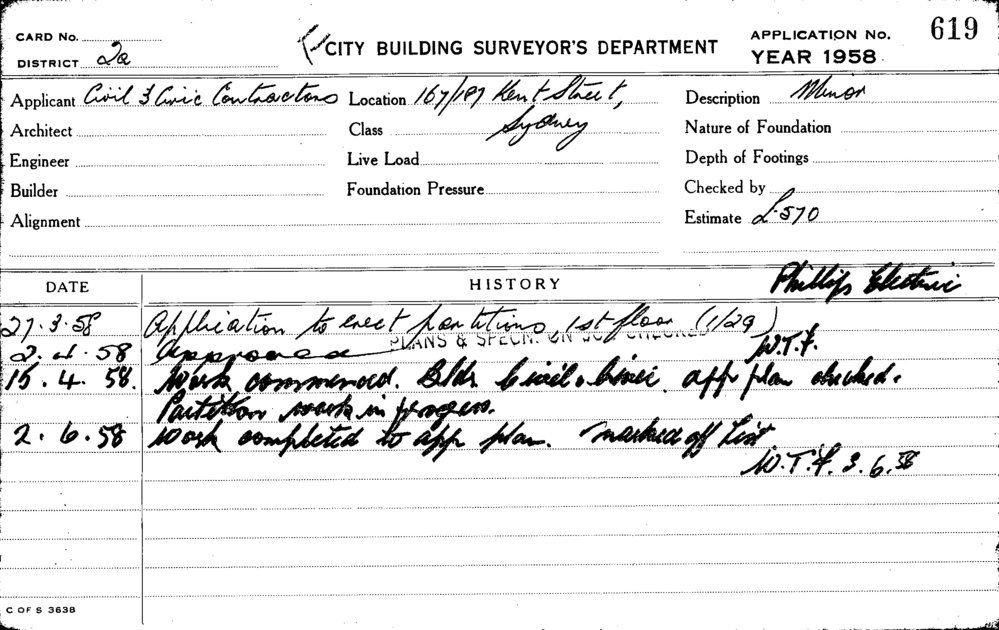 CARD No.
CITY BUILDING SURVEYOR'S DEPARTMENT
APPLICATION No. 619
DISTRICT 2a
YEAR 1958
Applicant Civil & Civic Contractors Location 167/187 Kent Street, Sydney Description Minor
Architect Class Nature of Foundation
Engineer Live Load Depth of Footings
Builder Foundation Pressure Checked by
Alignment Estimate £570
DATE HISTORY Phillips Electric
27.3.58 Application to erect partitions, 1st floor (1/29)
2.4.58 Approved PLANS & SPECN. ON JOB CHECKED W.T.F.
15.4.58. Work commenced. Bldr Civil & Civic. app plan checked.
Partition work in progress.
2.6.58 Work completed to app plan. Marked off List
W.T.F. 3.6.58
C OF S 3638